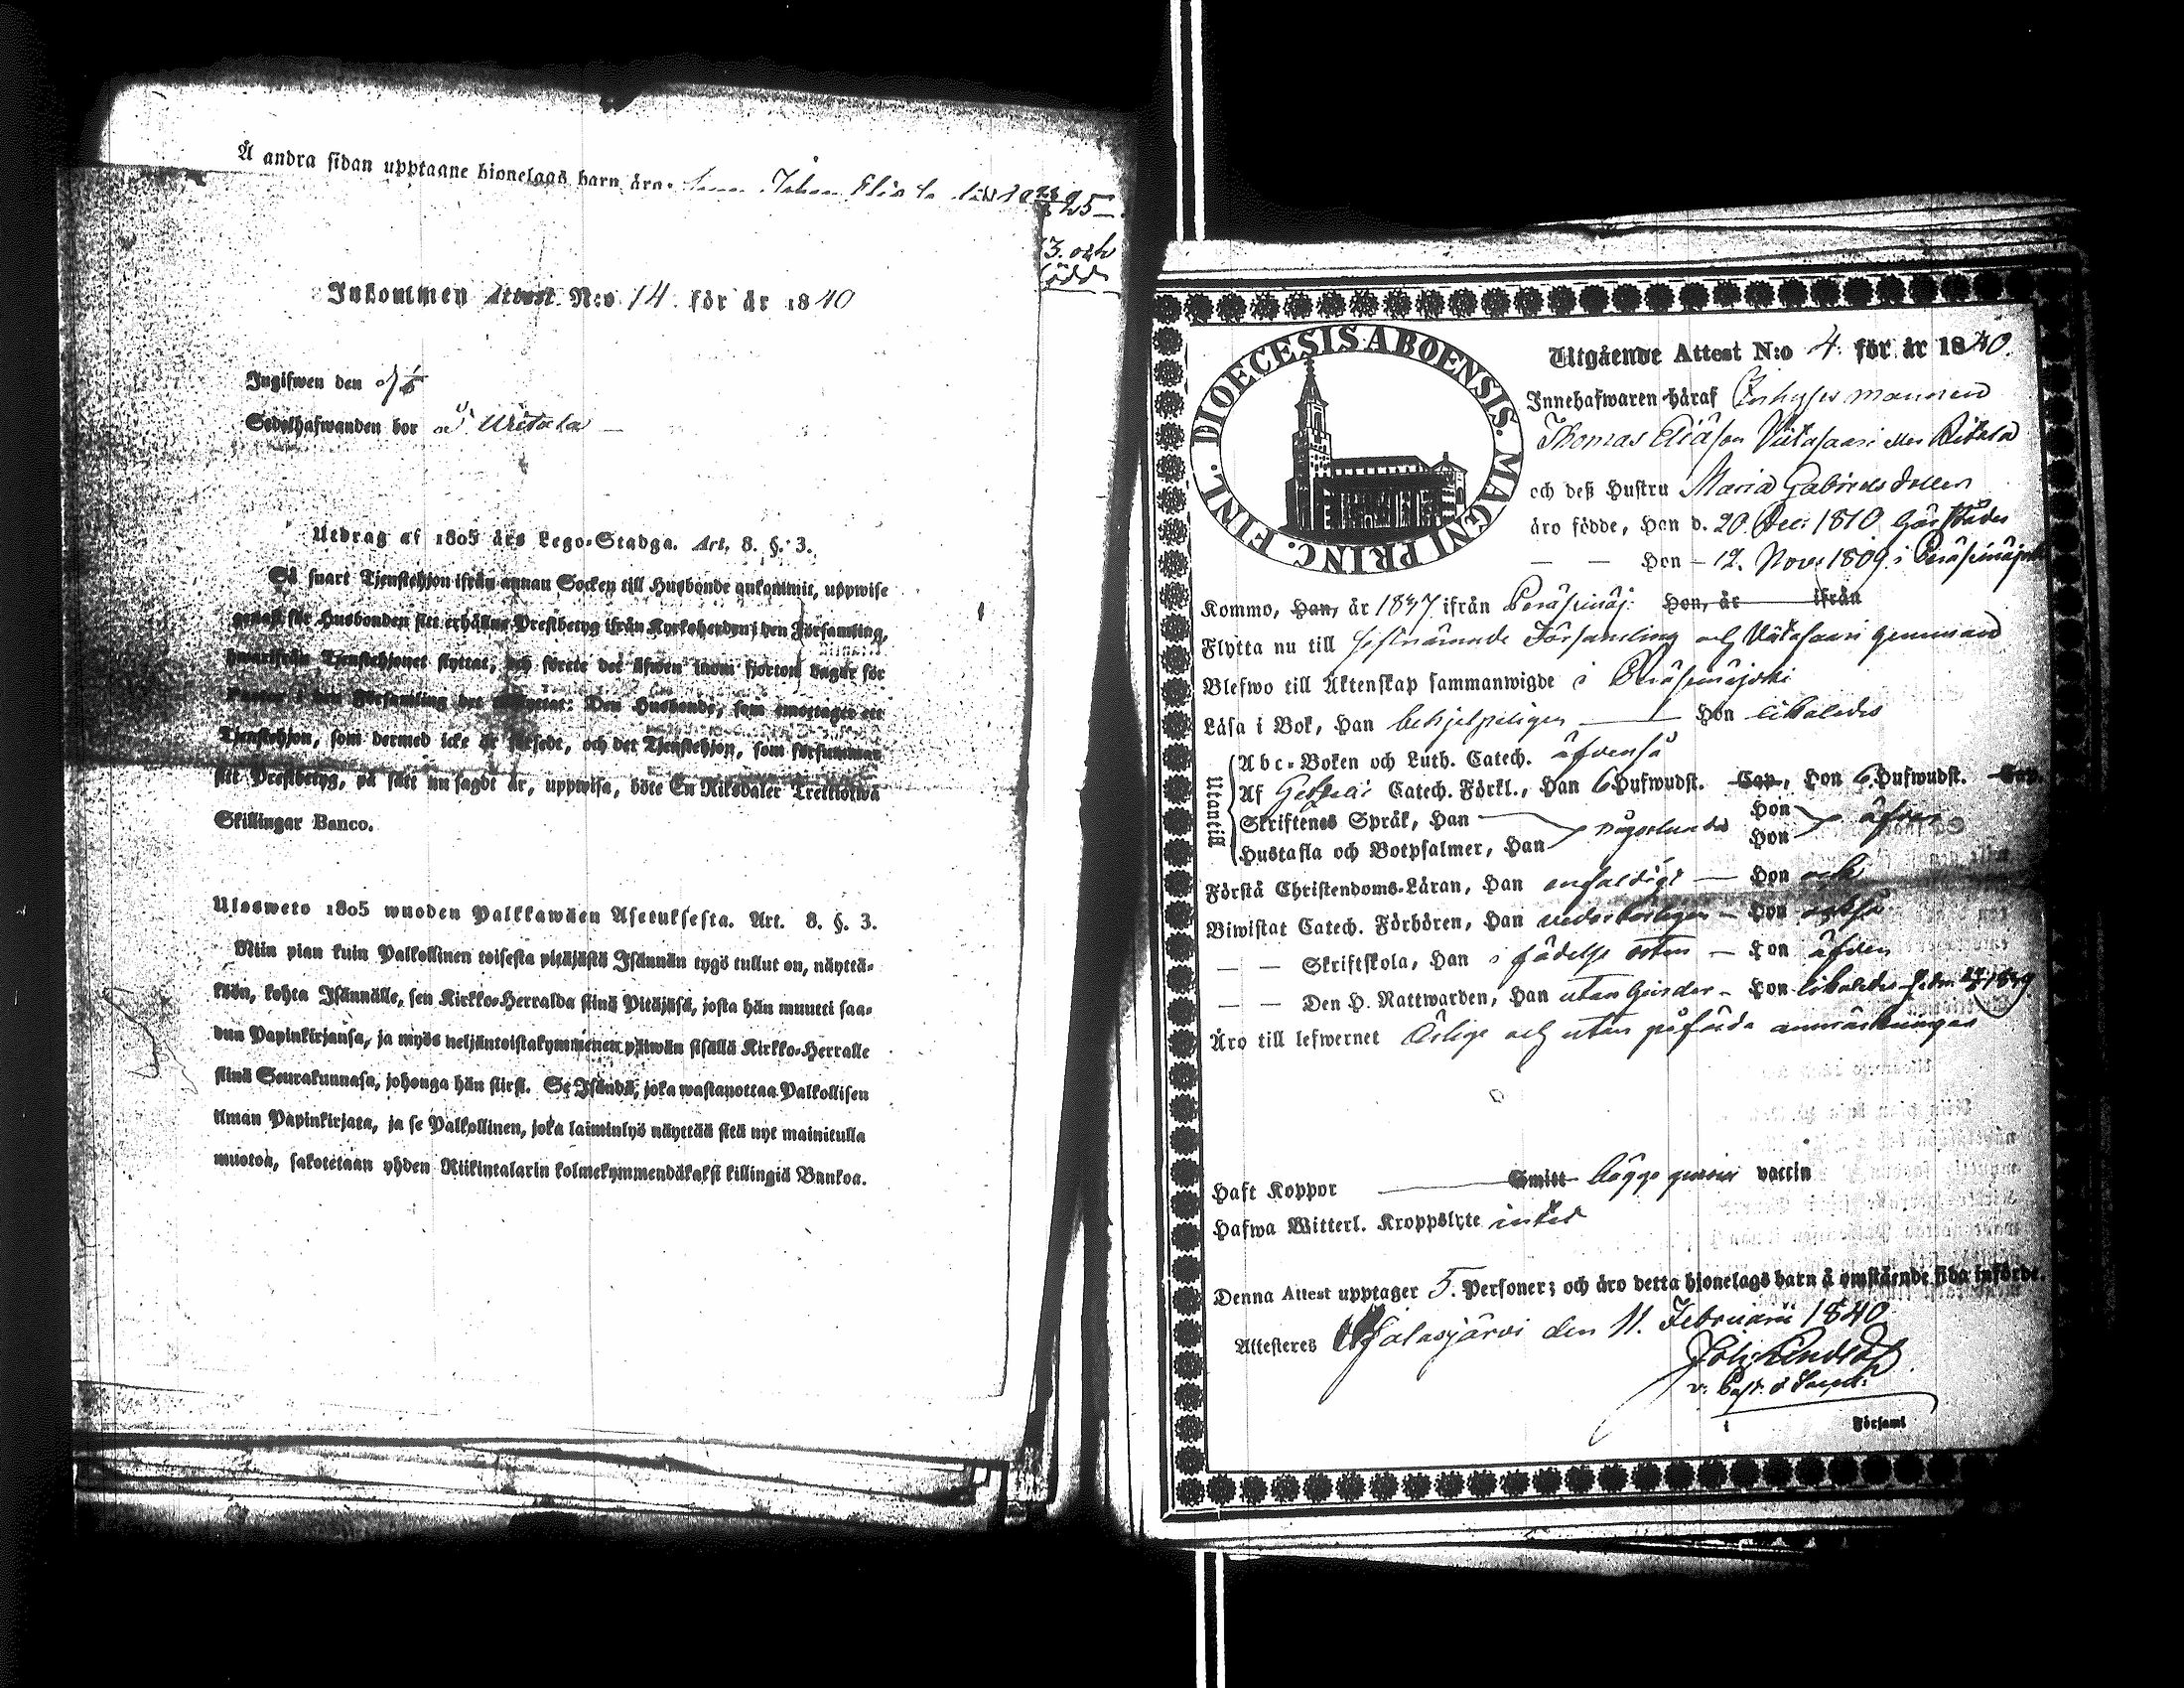 Å andra sidan upptagne hionelags barn äro.
25
3. och
född
Inkommen Attest N:o 14. för år 1840
Ingifwen den
Sedelhafwanden bor
Utdrag af 1805 års Lego-Stadga. Art. 8. §. 3.
Så snart Tjenstehjon ifrån annan Socken till Husbonde ankommit, uppwise
genast för Husbonden sitt erhållne Prestbetyg ifrån Kyrkoherden i den Församling,
hwarifrån Tjenstehjonet flyttat, och förete det äfwen inom fjorton dagar för
i den Församling det Den Husbonde, som emottager ett
Tjenstehjon, som dermed icke är försedt, och det Tjenstehjon, som försummar
sitt Prestbetyg, på sätt nu sagdt är, uppwisa, böte En Riksdaler Trettiotwå
Skillingar Banco.
Ulosweto 1805 wuoden Palkkawäen Asetuksesta. Art. 8. §. 3.
Niin pian kuin Palkollinen toisesta pitäjästä Isännän tygö tullut on, näyttä-
köön, kohta Isännälle, sen Kirkko-Herralda siinä Pitäjäsä, josta hän muutti saa-
dun Papinkirjansa, ja myös neljäntoistakymmenen päiwän sisällä Kirkko-Herralle
siinä Seurakunnasa, johonga hän siirsi. Se Isändä, joka wastanottaa Palkollisen
ilman Papinkirjata, ja se Palkollinen, joka laiminlyö näyttää sitä nyt mainitulla
muotoa, sakotetaan yhden Riikintalarin kolmekymmendäkaksi killingiä Bankoa.
DIOECESIS ABOENSIS. MAGNI PRINC. FINL.
Utgående Attest N:o 4. för år 1840.
Innehafwaren häraf Inhyses mannen
Thomas Eliäson Viitasaari eller Ritala
och deß Hustru Maria Gabrielsdotter
äro födde, Han d. 20. Dec: 1810 härstädes
— — Hon — 12. Nov: 1809 i Peräseinäjoki
Kommo, Han, år 1837 ifrån Peräseinäj: Hon, år ifrån
Flytta nu till sistnämnde Församling och Viitasaari hemman
Blefwo till Äktenskap sammanwigde i Peräseinäjoki
Läsa i Bok, Han behjelpeligen — Hon likaledes
Utantill
Abc-Boken och Luth. Catech. äfvenså
Af Gezelii Catech. Förkl., Han 6 Hufwudst. Cap., Hon 6 Hufwudst. Cap.
Skriftenes Språk, Han någorlunda Hon äfven
Hustafla och Botpsalmer, Han Hon
Förstå Christendoms-Läran, Han enfaldigt — Hon och
Biwistat Catech. Förhören, Han vederbörligen — Hon också
— — Skriftskola, Han i födelse orten — Hon äfven
— — Den H. Nattwarden, Han utan hinder — Hon likaledes
Äro till lefwernet ärlige och utan påförde anmärkningar
Haft Koppor — Smitt begge genom vaccin
Hafwa Witterl. Kroppslyte intet
Denna Attest upptager 5. Personer; och äro detta hjonelags barn å omstående sida införde.
Attesteres Jalasjärvi den 11. Februarii 1840
i Församl